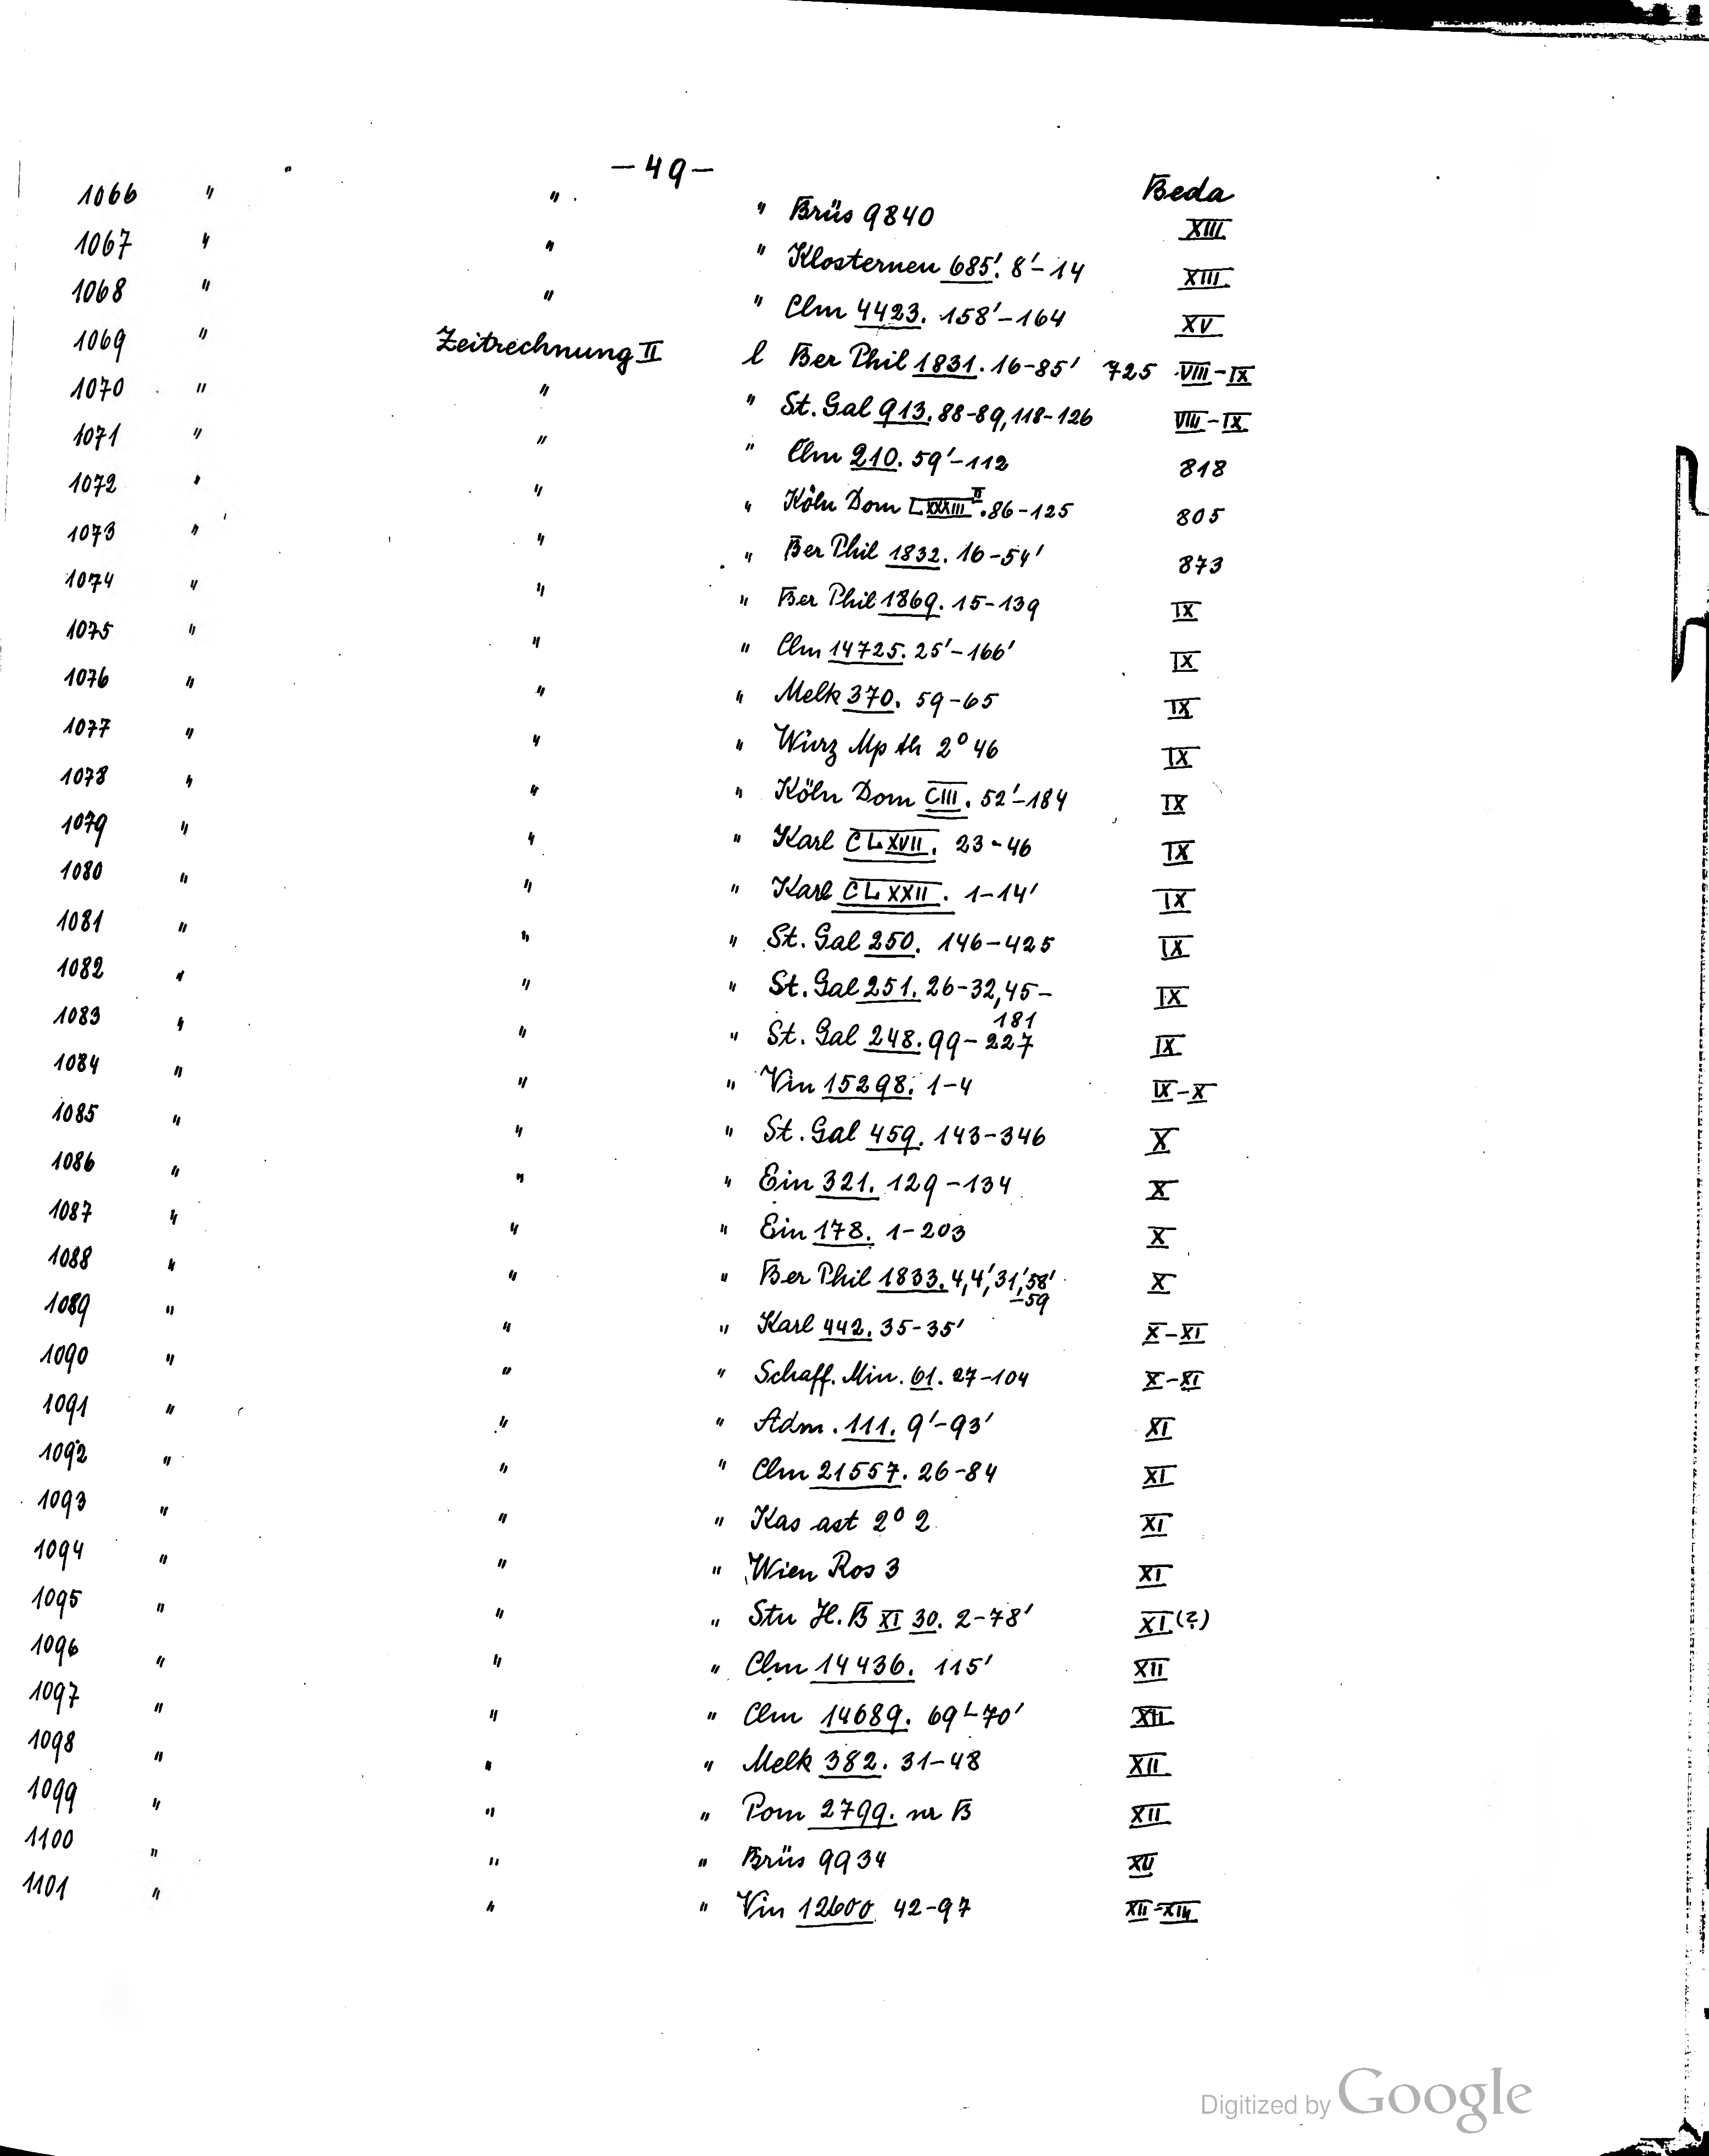 —49—
Beda
1066 " " " Brüs 9840 XIII
1067 " " " Klosterneu 685'. 8'–14 XIII
1068 " " " Clm 4423. 158'–164 XV
1069 " Zeitrechnung II l Ber Phil 1831. 16–85' 725 VIII–IX
1070 " " " St. Gal 913. 88–89, 118–126 VIII–IX
1071 " " " Clm 210. 59'–112 818
1072 " " " Köln Dom LXXXIII II. 86–125 805
1073 " " " Ber Phil 1832. 16–54' 873
1074 " " " Ber Phil 1869. 15–139 IX
1075 " " " Clm 14725. 25'–166' IX
1076 " " " Melk 370. 59–65 IX
1077 " " " Würz Mp th 2° 46 IX
1078 " " " Köln Dom CIII. 52'–184 IX
1079 " " " Karl CLXVII. 23–46 IX
1080 " " " Karl CLXXII. 1–14' IX
1081 " " " St. Gal 250. 146–425 IX
1082 " " " St. Gal 251. 26–32, 45–
181 IX
1083 " " " St. Gal 248. 99–227 IX
1084 " " " Vin 15298. 1–4 IX–X
1085 " " " St. Gal 459. 143–346 X
1086 " " " Ein 321. 129–134 X
1087 " " " Ein 178. 1–203 X
1088 " " " Ber Phil 1833. 4, 4', 31', 58'
–59 X
1089 " " " Karl 442. 35–35' X–XI
1090 " " " Schaff. Min. 61. 27–104 X–XI
1091 " " " Adm. 111. 9'–93' XI
1092 " " " Clm 21557. 26–84 XI
1093 " " " Kas ast 2° 2 XI
1094 " " " Wien Ros 3 XI
1095 " " " Stu H. B XI 30. 2–78' XI (?)
1096 " " " Clm 14436. 115' XII
1097 " " " Clm 14689. 69'–70' XII
1098 " " " Melk 382. 31–48 XII
1099 " " " Pom 2799. nr B XII
1100 " " " Brüs 9934 XII
1101 " " " Vin 12600 42–97 XII–XIII
Digitized by Google